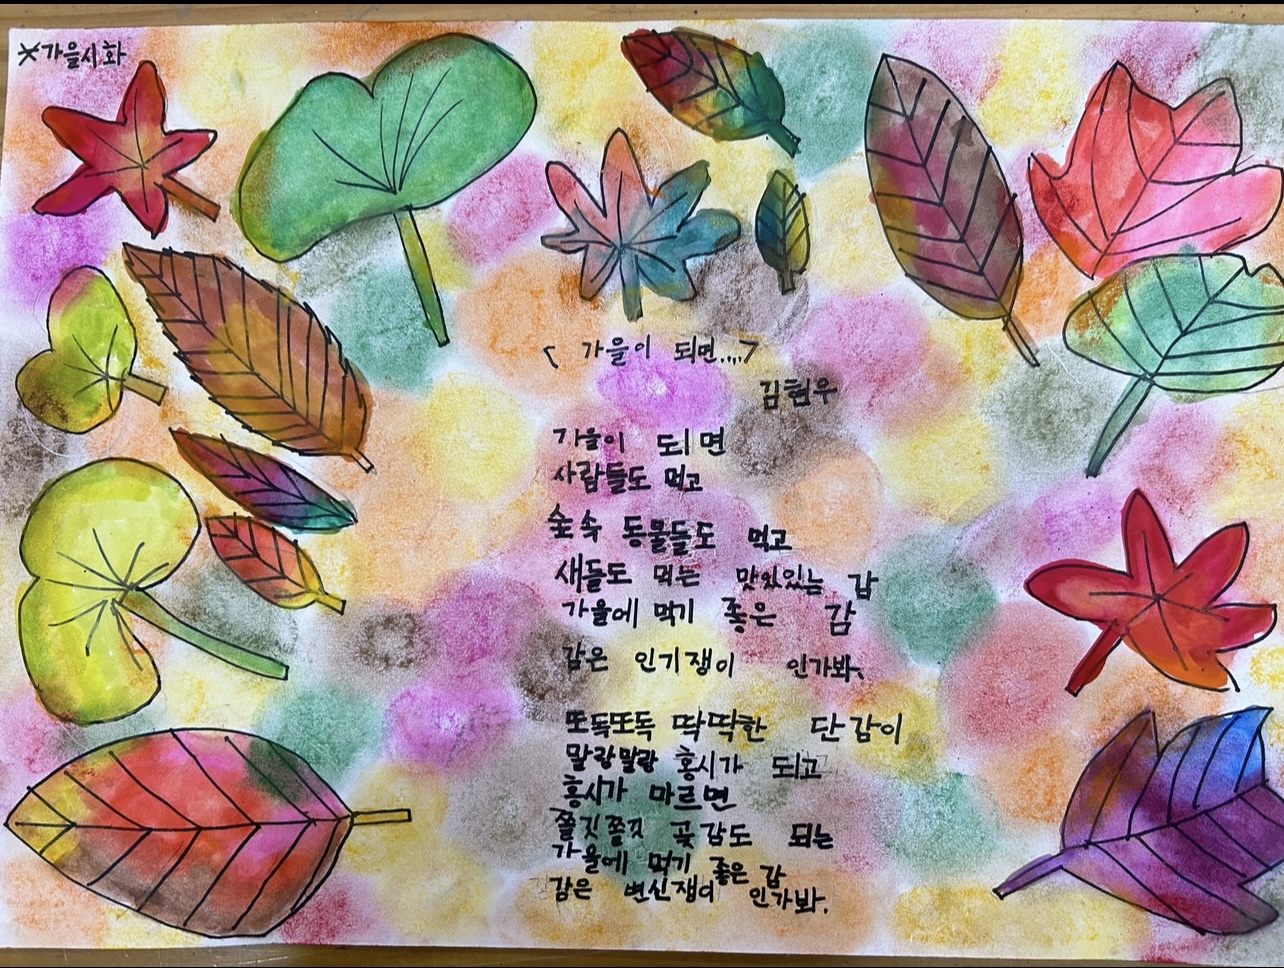 *가을시화
< 가을이 되면....>
김현우
가을이 되면
사람들도 먹고
숲속 동물들도 먹고
새들도 먹는 맛있있는 감
가을에 먹기 좋은 감
감은 인기쟁이 인가봐.
또독또독 딱딱한 단감이
말랑말랑 홍시가 되고
홍시가 마르면
쫄깃쫄깃 곶감도 되는
가을에 먹기 좋은 감
감은 변신쟁이 인가봐.